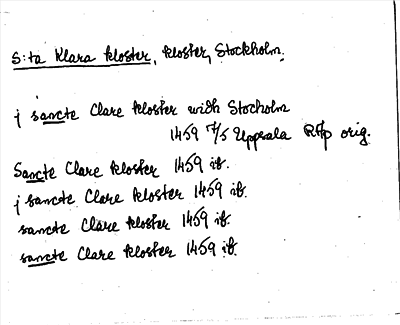 S:ta Klara kloster, kloster, Stockholm.
j sancte Clare kloster widh Stocholm
1459 7/5 Uppsala RAp orig.
Sancte Clare kloster 1459 ib.
j sancte Clare kloster 1459 ib
sancte Clare kloster 1459 ib.
sancte Clare kloster 1459 ib.